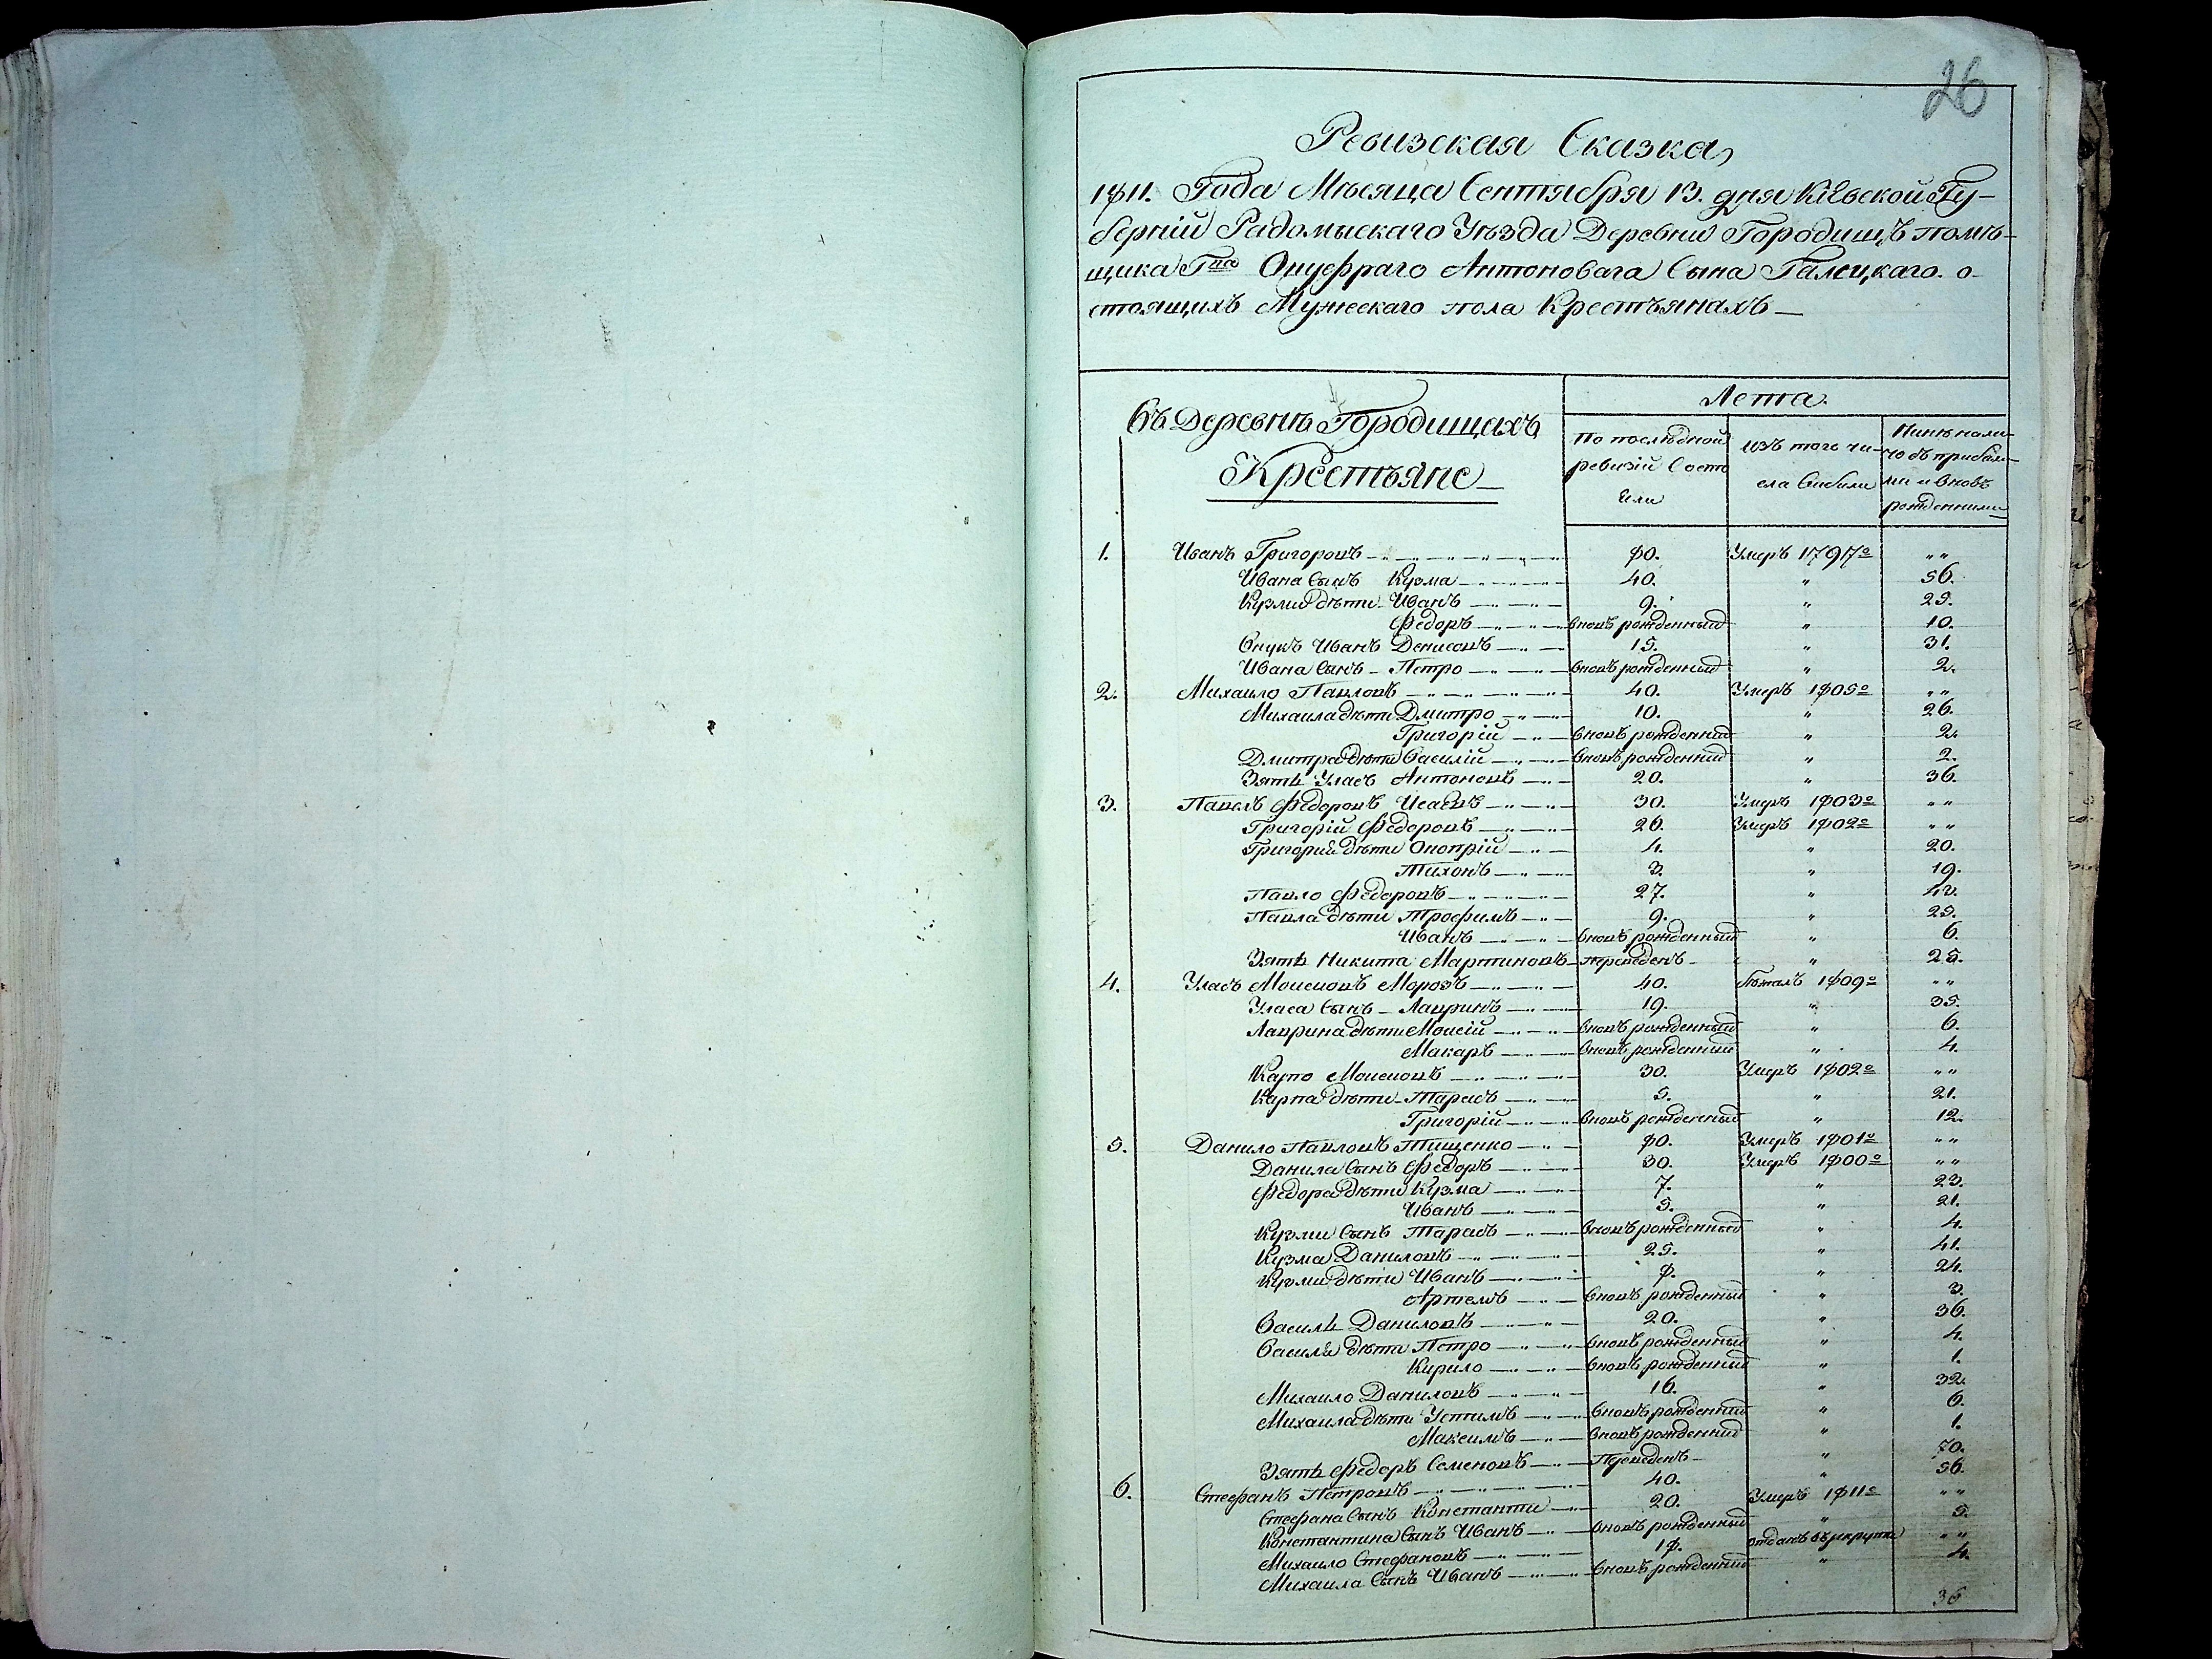 26
Ревизская Сказка,
1811. Года Мѣсяца Сентября 13. дня Кіевской Гу-
берніи Радомыскаго Уѣзда Деревни Городищъ помѣ-
щика Гна Онуфраго Антоноваго Сына Галецкаго. о-
стоящихъ Мужескаго пола Крестьянахъ —
Въ Деревнѣ Городищахъ
Крестьяне —
Лета.
По послѣдной ревизіи Состояли
изъ того числа Выбили
Нинѣ налично съ прибылими и вновь рожденними
1. Иванъ Григоровъ 80. Умеръ 1797го „ „
Ивана Сынъ Кузма 40. „ 56.
Кузми дѣти Иванъ 9. „ 25.
Федоръ вновь рожденный „ 10.
Внукъ Иванъ Денисовъ 15. „ 31.
Ивана Сынъ Петро вновь рожденный „ 2.
2. Михаило Павловъ 40. Умеръ 1805го „ „
Михаила дѣти Дмитро 10. „ 26.
Григорій вновь рожденний „ 2.
Дмитра дѣти Василій вновь рожденний „ 2.
Зять Уласъ Антоновъ 20. „ 36.
3. Павелъ Федоровъ Исаевъ 30. Умеръ 1803го „ „
Григорій Федоровъ 26. Умеръ 1802го „ „
Григорія дѣти Оноприй 4. „ 20.
Тихонъ 3. „ 19.
Павло Федоровъ 27. „ 43.
Павла дѣти Трофимъ 9. „ 25.
Иванъ вновь рожденный „ 6.
Зять Никита Мартиновъ переведенъ „ 25.
4. Уласъ Моисеовъ Морозъ 40. бѣжалъ 1809го „ „
Уласа Сынъ Лавринъ 19. „ 35.
Лаврина дѣти Моисій вновь рожденный „ 6.
Макаръ вновь рожденний „ 4.
Карпо Моисеовъ 30. Умеръ 1802го „ „
Карпа дѣти Тарасъ 5. „ 21.
Григорій вновь рожденный „ 12.
5. Данило Павловъ Тищенко 80. Умеръ 1801го „ „
Данила Сынъ Федоръ 30. Умеръ 1800го „ „
Федора дѣти Кузма 7. „ 23.
Иванъ 5. „ 21.
Кузми Сынъ Тарасъ вновь рожденный „ 4.
Кузма Даниловъ 25. „ 41.
Кузми дѣти Иванъ 8. „ 24.
Артемъ вновь рожденный „ 3.
Василь Даниловъ 20. „ 36.
Василя дѣти Петро вновь рожденный „ 4.
Кирило вновь рожденный „ 1.
Михаило Даниловъ 16. „ 32.
Михаила дѣти Устимъ вновь рожденний „ 6.
Максимъ вновь рожденний „ 1.
Зять Федоръ Семеновъ Переведенъ „ 70.
6. Стефанъ Петровъ 40. „ 56.
Стефана Сынъ Константи 20. Умеръ 1811го „ „
Константина Сынъ Иванъ вновь рожденный „ 5.
Михаило Стефановъ 18. отданъ в рекрути „ „
Михаила Сынъ Иванъ вновь рожденный „ 4.
36